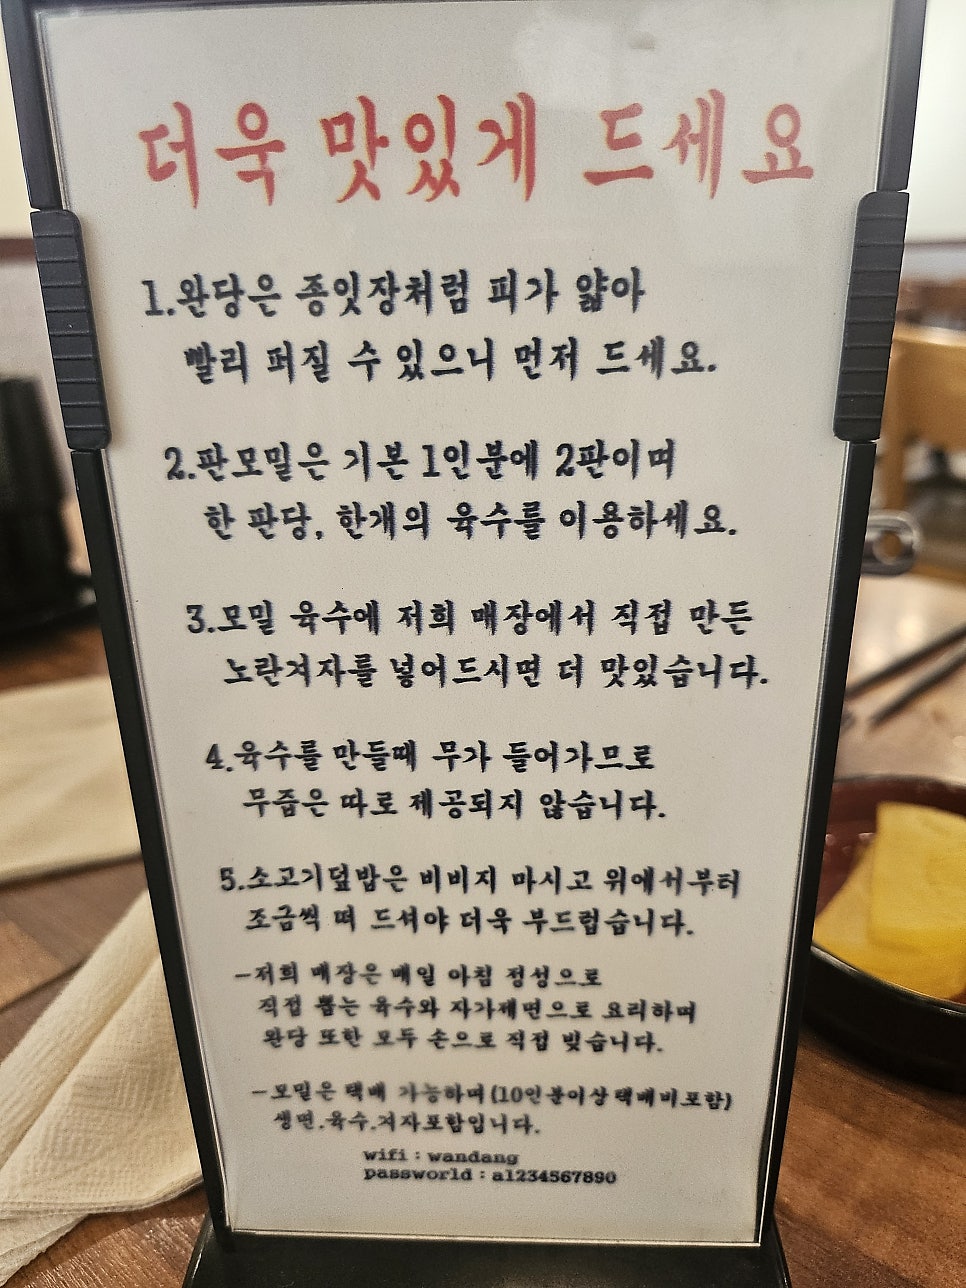 더욱 맛있게 드세요
1.완당은 종잇장처럼 피가 얇아
빨리 퍼질 수 있으니 먼저 드세요.
2.판모밀은 기본 1인분에 2판이며
한 판당, 한개의 육수를 이용하세요.
3.모밀 육수에 저희 매장에서 직접 만든
노란겨자를 넣어드시면 더 맛있습니다.
4.육수를 만들때 무가 들어가므로
무즙은 따로 제공되지 않습니다.
5.소고기덮밥은 비비지 마시고 위에서부터
조금씩 떠 드셔야 더욱 부드럽습니다.
-저희 매장은 매일 아침 정성으로
직접 뽑는 육수와 자가제면으로 요리하며
완당 또한 모두 손으로 직접 빚습니다.
-모밀은 택배 가능하며(10인분이상 택배비포함)
생면.육수.겨자포함입니다.
wifi : wandang
passworld : a1234567890